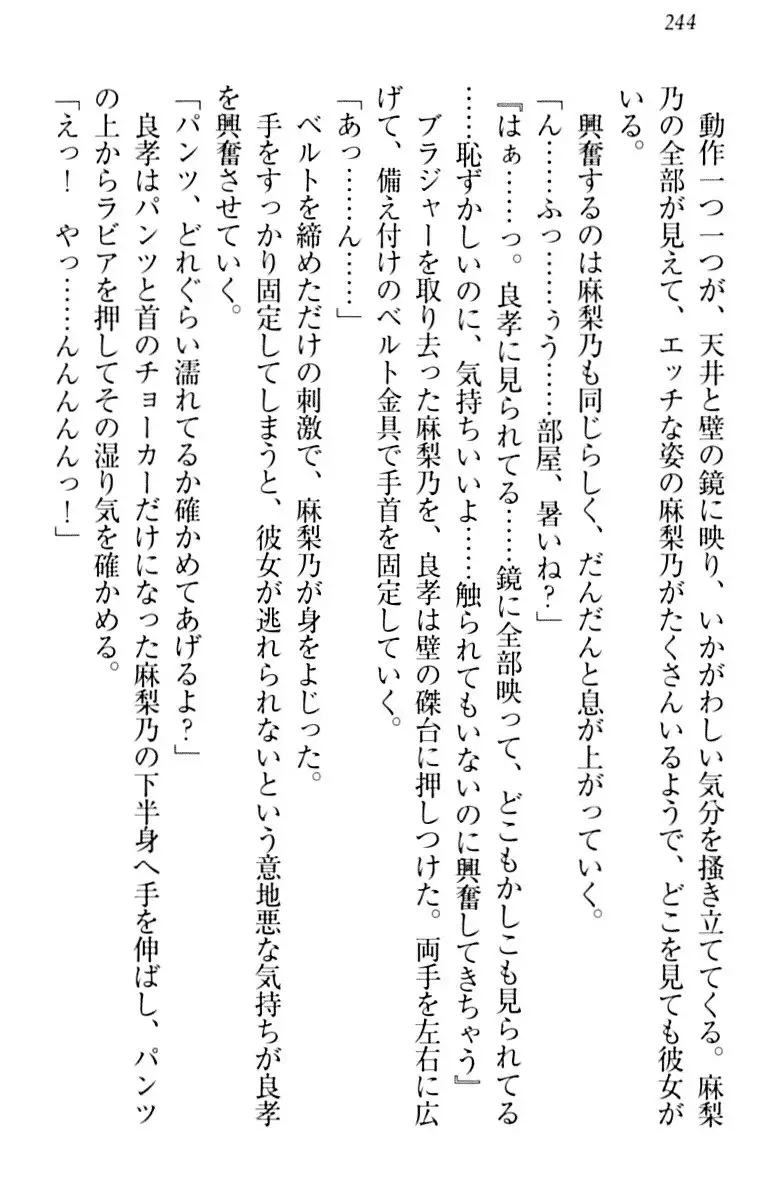 244
動作一つ一つが、天井と壁の鏡に映り、いかがわしい気分を掻き立ててくる。麻梨
乃の全部が見えて、エッチな姿の麻梨乃がたくさんいるようで、どこを見ても彼女が
いる。
興奮するのは麻梨乃も同じらしく、だんだんと息が上がっていく。
「ん……ふっ……ぅう……部屋、暑いね?」
『はぁ……っ。良孝に見られてる……鏡に全部映って、どこもかしこも見られてる
……恥ずかしいのに、気持ちいいよ……触られてもいないのに興奮してきちゃう』
ブラジャーを取り去った麻梨乃を、良孝は壁の磔台に押しつけた。両手を左右に広
げて、備え付けのベルト金具で手首を固定していく。
「あっ……ん……」
ベルトを締めただけの刺激で、麻梨乃が身をよじった。
手をすっかり固定してしまうと、彼女が逃れられないという意地悪な気持ちが良孝
を興奮させていく。
「パンツ、どれぐらい濡れてるか確かめてあげるよ?」
良孝はパンツと首のチョーカーだけになった麻梨乃の下半身へ手を伸ばし、パンツ
の上からラビアを押してその湿り気を確かめる。
「えっ! やっ……んんんんっ!」